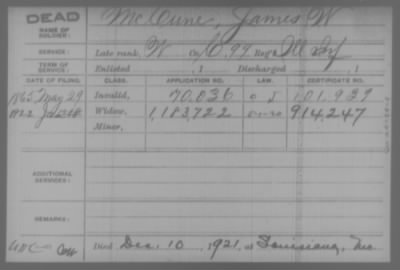 DEAD
McCune, James W
NAME OF SOLDIER:
SERVICE: Late rank, Co. 99 Reg't Ill Inf
TERM OF SERVICE: Enlisted , 1 Discharged , 1
DATE OF FILING. CLASS. APPLICATION NO. LAW. CERTIFICATE NO.
1865 May 29 Invalid, 70,036 101,929
1922 Widow, 1,183,722 914,247
Minor,
ADDITIONAL SERVICES:
REMARKS:
Died Dec. 10, 1921, at Louisiana, Mo.